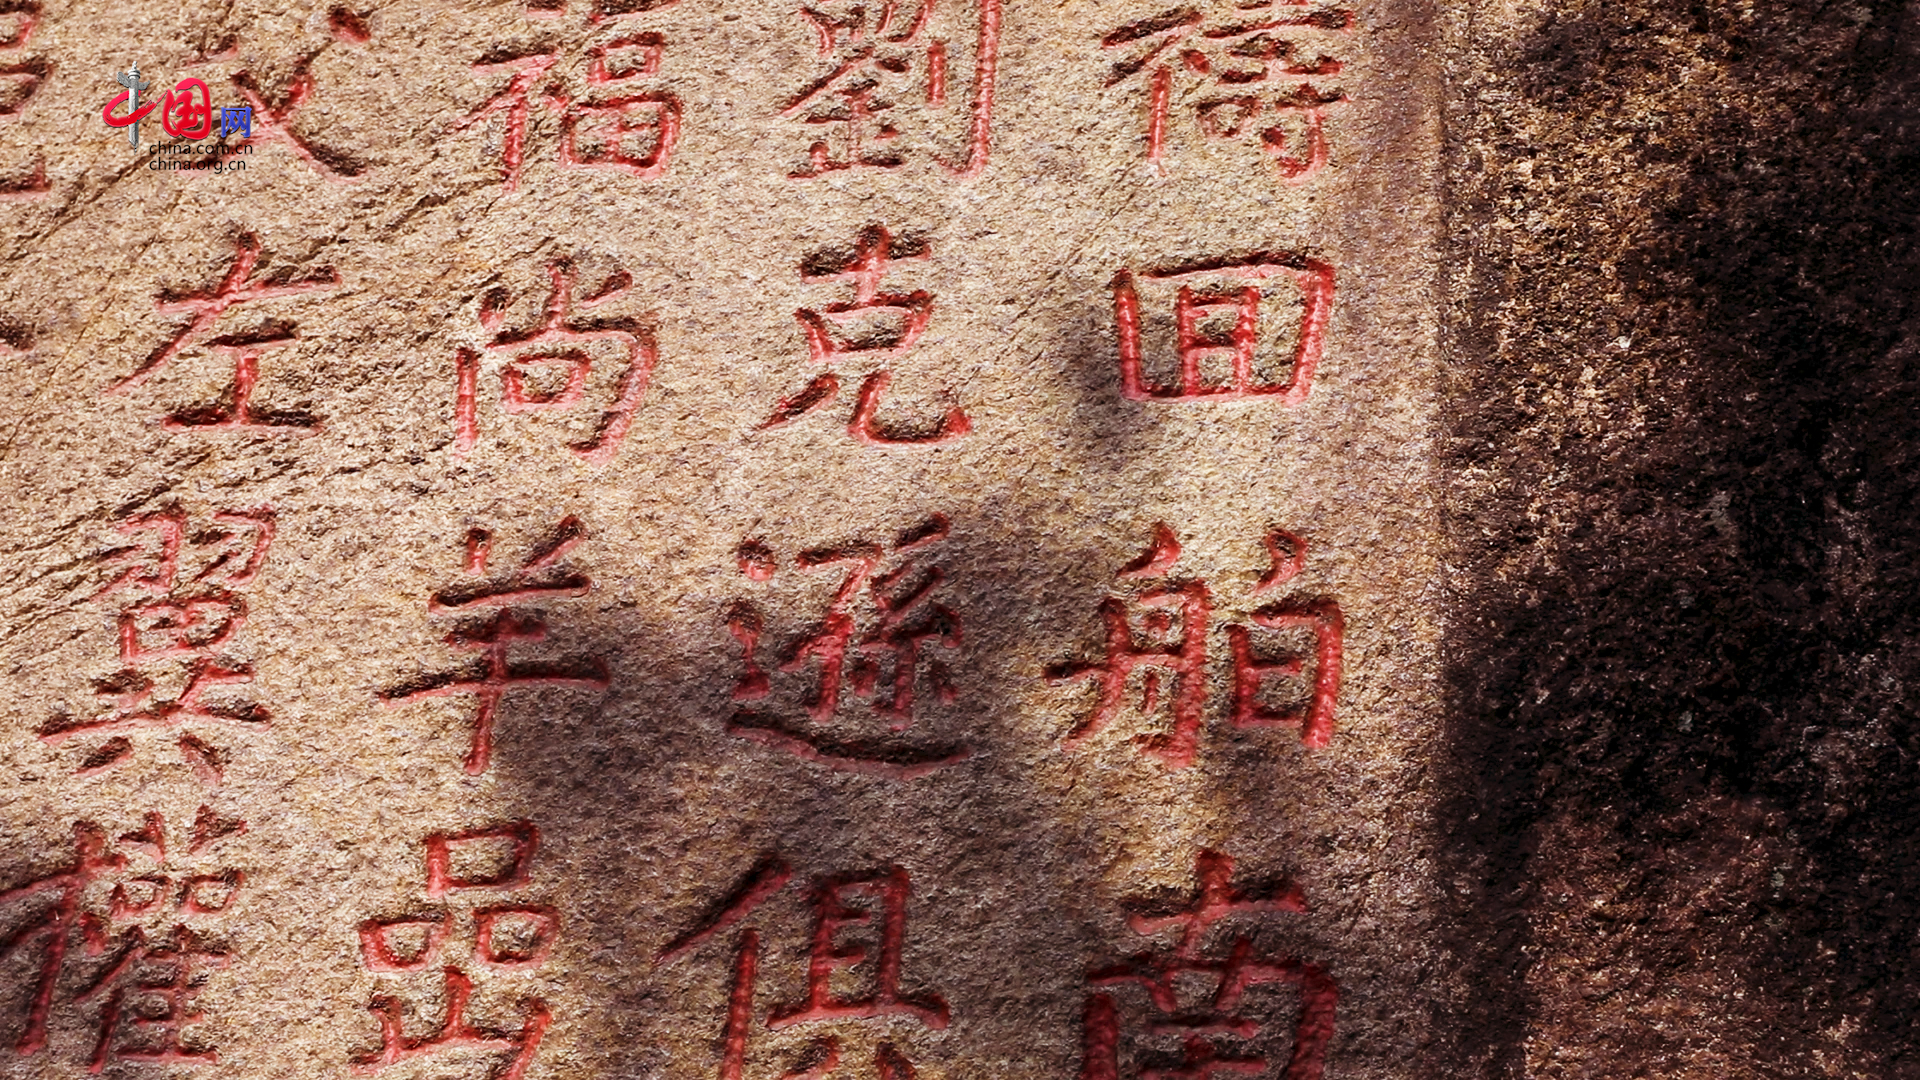 中国网
china.com.cn
china.org.cn
禱囬舶南
劉克遜俱
福尚羊喦
左翼權